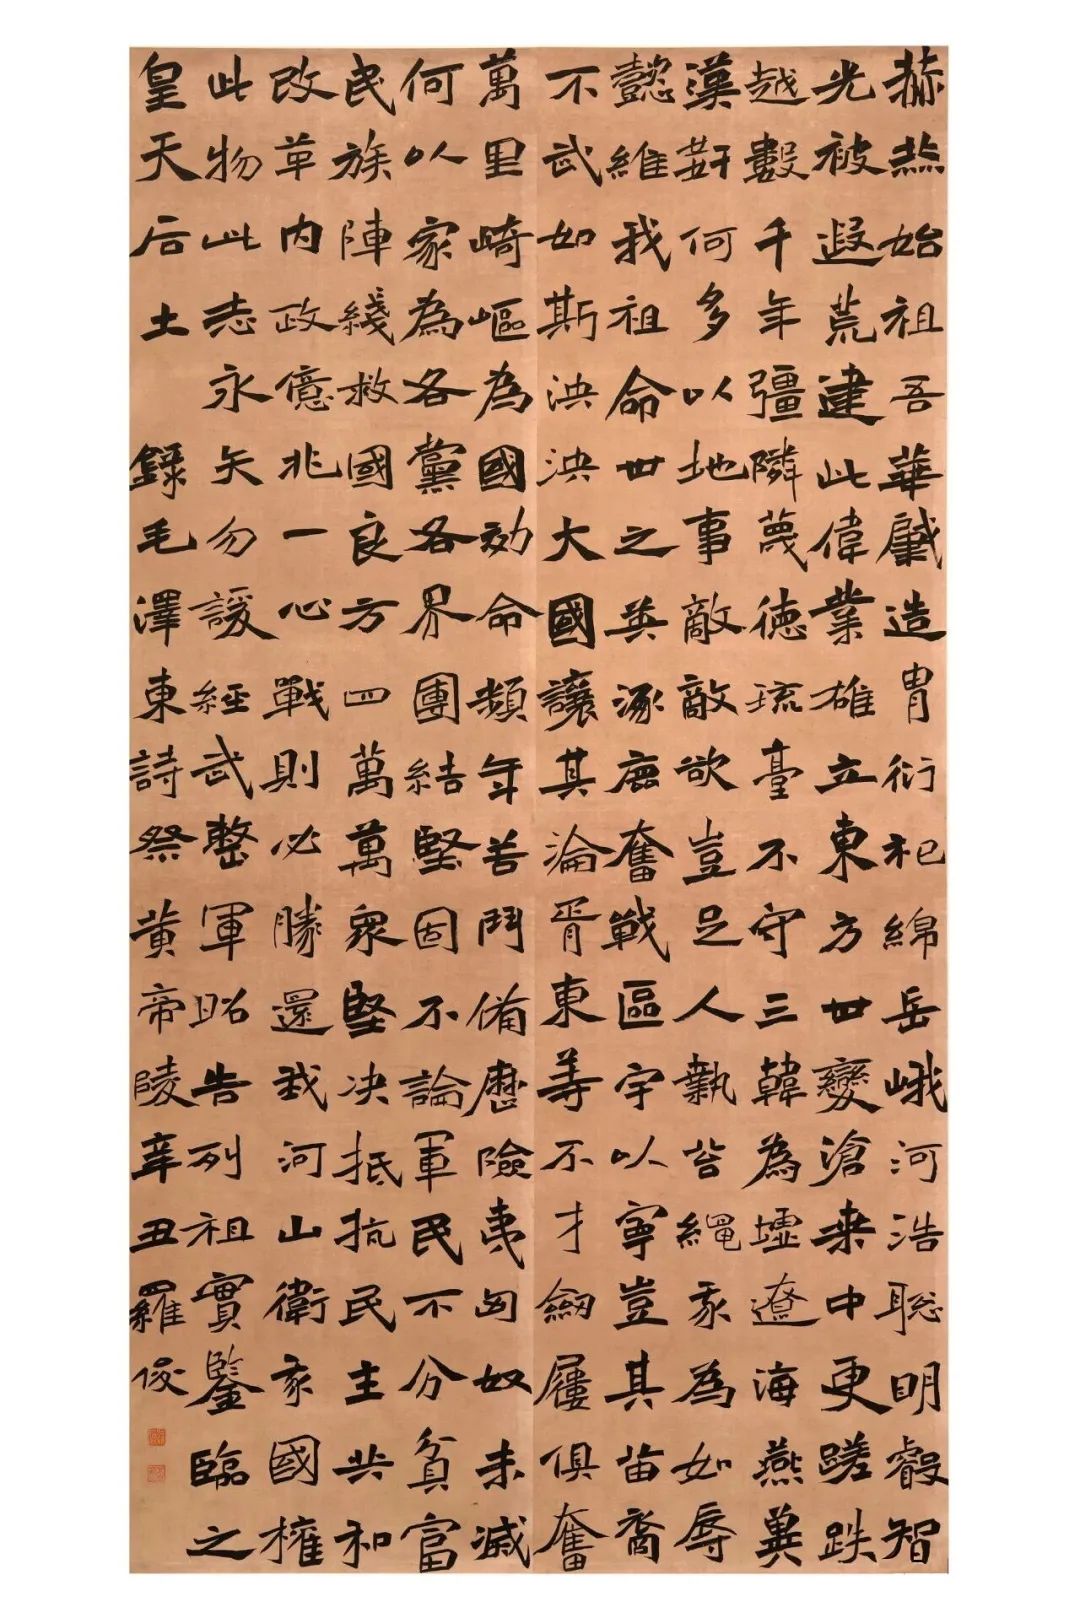 赫然始祖吾華肇造胄衍祀綿岳峨河浩聰明睿智
光被遐荒建此偉業雄立東方世變滄桑中更蹉跌
越數千年彊隣蔑德琉臺不守三韓為墟遼海燕冀
漢奸何多以地事敵敵欲豈足人執笞繩我為如辱
懿維我祖命世之英涿鹿奮戰區宇以寧豈其苗裔
不武如斯泱泱大國讓其淪胥東等不才劍屨俱奮
萬里崎嶇為國効命頻年苦鬥備歷險夷匈奴未滅
何以家為各黨各界團結堅固不論軍民不分貧富
民族陣綫救國良方四萬萬衆堅決抵抗民主共和
改革內政億兆一心戰則必勝還我河山衛我國權
此物此志永矢勿諼經武整軍昭告列祖實鑒臨之
皇天后土 錄毛澤東詩祭黃帝陵辛丑羅俊